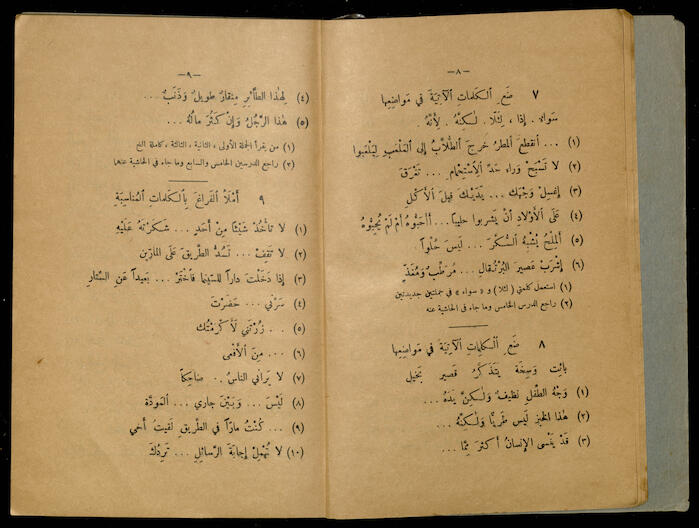 -٨-
٧ ضَعِ ٱلْكَلِمَاتِ ٱلْآتِيَةَ فِي مَوَاضِعِهَا
سَوَاءٌ. إِذَا، لِئَلَّا. لٰكِنَّهُ. لِأَنَّهُ.
(١) ... أَنْقَطَعَ المطرُ خَرَجَ الطُّلَّابُ إِلى المَلْعَبِ لِيَلْعَبوا
(٢) لا تَسْبَحْ وَراء حَدِّ الاِسْتِحْمامِ ... تَغْرَقَ
(٣) إِغْسِلْ وَجْهَكَ ... يَدَيْكَ قَبْلَ الأَكْلِ
(٤) عَلَى الأَوْلادِ أَنْ يَشْرَبوا حليباً... أَأَحَبُّوهُ أَمْ لَمْ يُحِبُّوهُ
(٥) أَلْمِلْحُ يُشْبِهُ السُّكَّرَ ... لَيْسَ حُلْواً.
(٦) إِشْرَبْ عَصيرَ البُرْتُقالِ ... مُرَطِّبٌ وَمُغَذٍّ
(١) استعمل كلمتي (لئلا) و «سواء» في جملتين جديدتين
(٢) راجع الدرس الخامس وما جاء في الحاشية عنه
٨ ضَعِ ٱلْكَلِمَاتِ ٱلْآتِيَةَ فِي مَوَاضِعِهَا
بائِت وَسِخَة يَتَذَكَّرُ قَصير بَخيل
(١) وَجْهُ الطِّفْلِ نَظيفٌ وَلٰكِنَّ يَدَهُ ...
(٢) هٰذا الخُبْزُ لَيْسَ طَرِيًّا وَلٰكِنَّهُ ...
(٣) قَدْ يَنْسى الإِنْسانُ أَكْثَرَ مِمّا ...
-٩-
(٤) لِهٰذا الطَّائِرِ مِنْقارٌ طويلٌ وَذَنَبٌ ...
(٥) هٰذا الرَّجُلُ وَإِنْ كَثُرَ مالُهُ ...
(١) من يقرأ الجملة الأولى، الثانية، الثالثة، كاملة الخ
(٢) راجع الدرسين الخامس والسابع وما جاء في الحاشية عنهما
٩ أَمْلَأِ الفَراغَ بِالكَلِماتِ المُناسِبَةِ
(١) لا تأخُذْ شَيْئًا مِنْ أَحَدٍ ... شَكَرْتَهُ عَلَيْهِ
(٢) لا تَقِفْ ... تَسُدُّ الطَّريقَ عَلَى المارّينَ
(٣) إِذا دَخَلْتَ داراً للسّينما فَاخْتَرْ ... بَعيداً عَنِ السِّتار
(٤) سَرَّني ... حَضَرْتَ
(٥) ... زُرْتَني لَأَكْرَمْتُك
(٦) ... مِنَ الأَفْعى
(٧) لا يَراني النّاسُ ... ضاحِكاً
(٨) لَيْسَ ... وَبَيْنَ جاري ... المَوَدَّة
(٩) ... كُنْتُ مارًّا في الطَّريقِ لَقيتُ أَخي
(١٠) لا تُهْمِلْ إِجابَةَ الرَّسائِلِ ... تَرِدُكَ